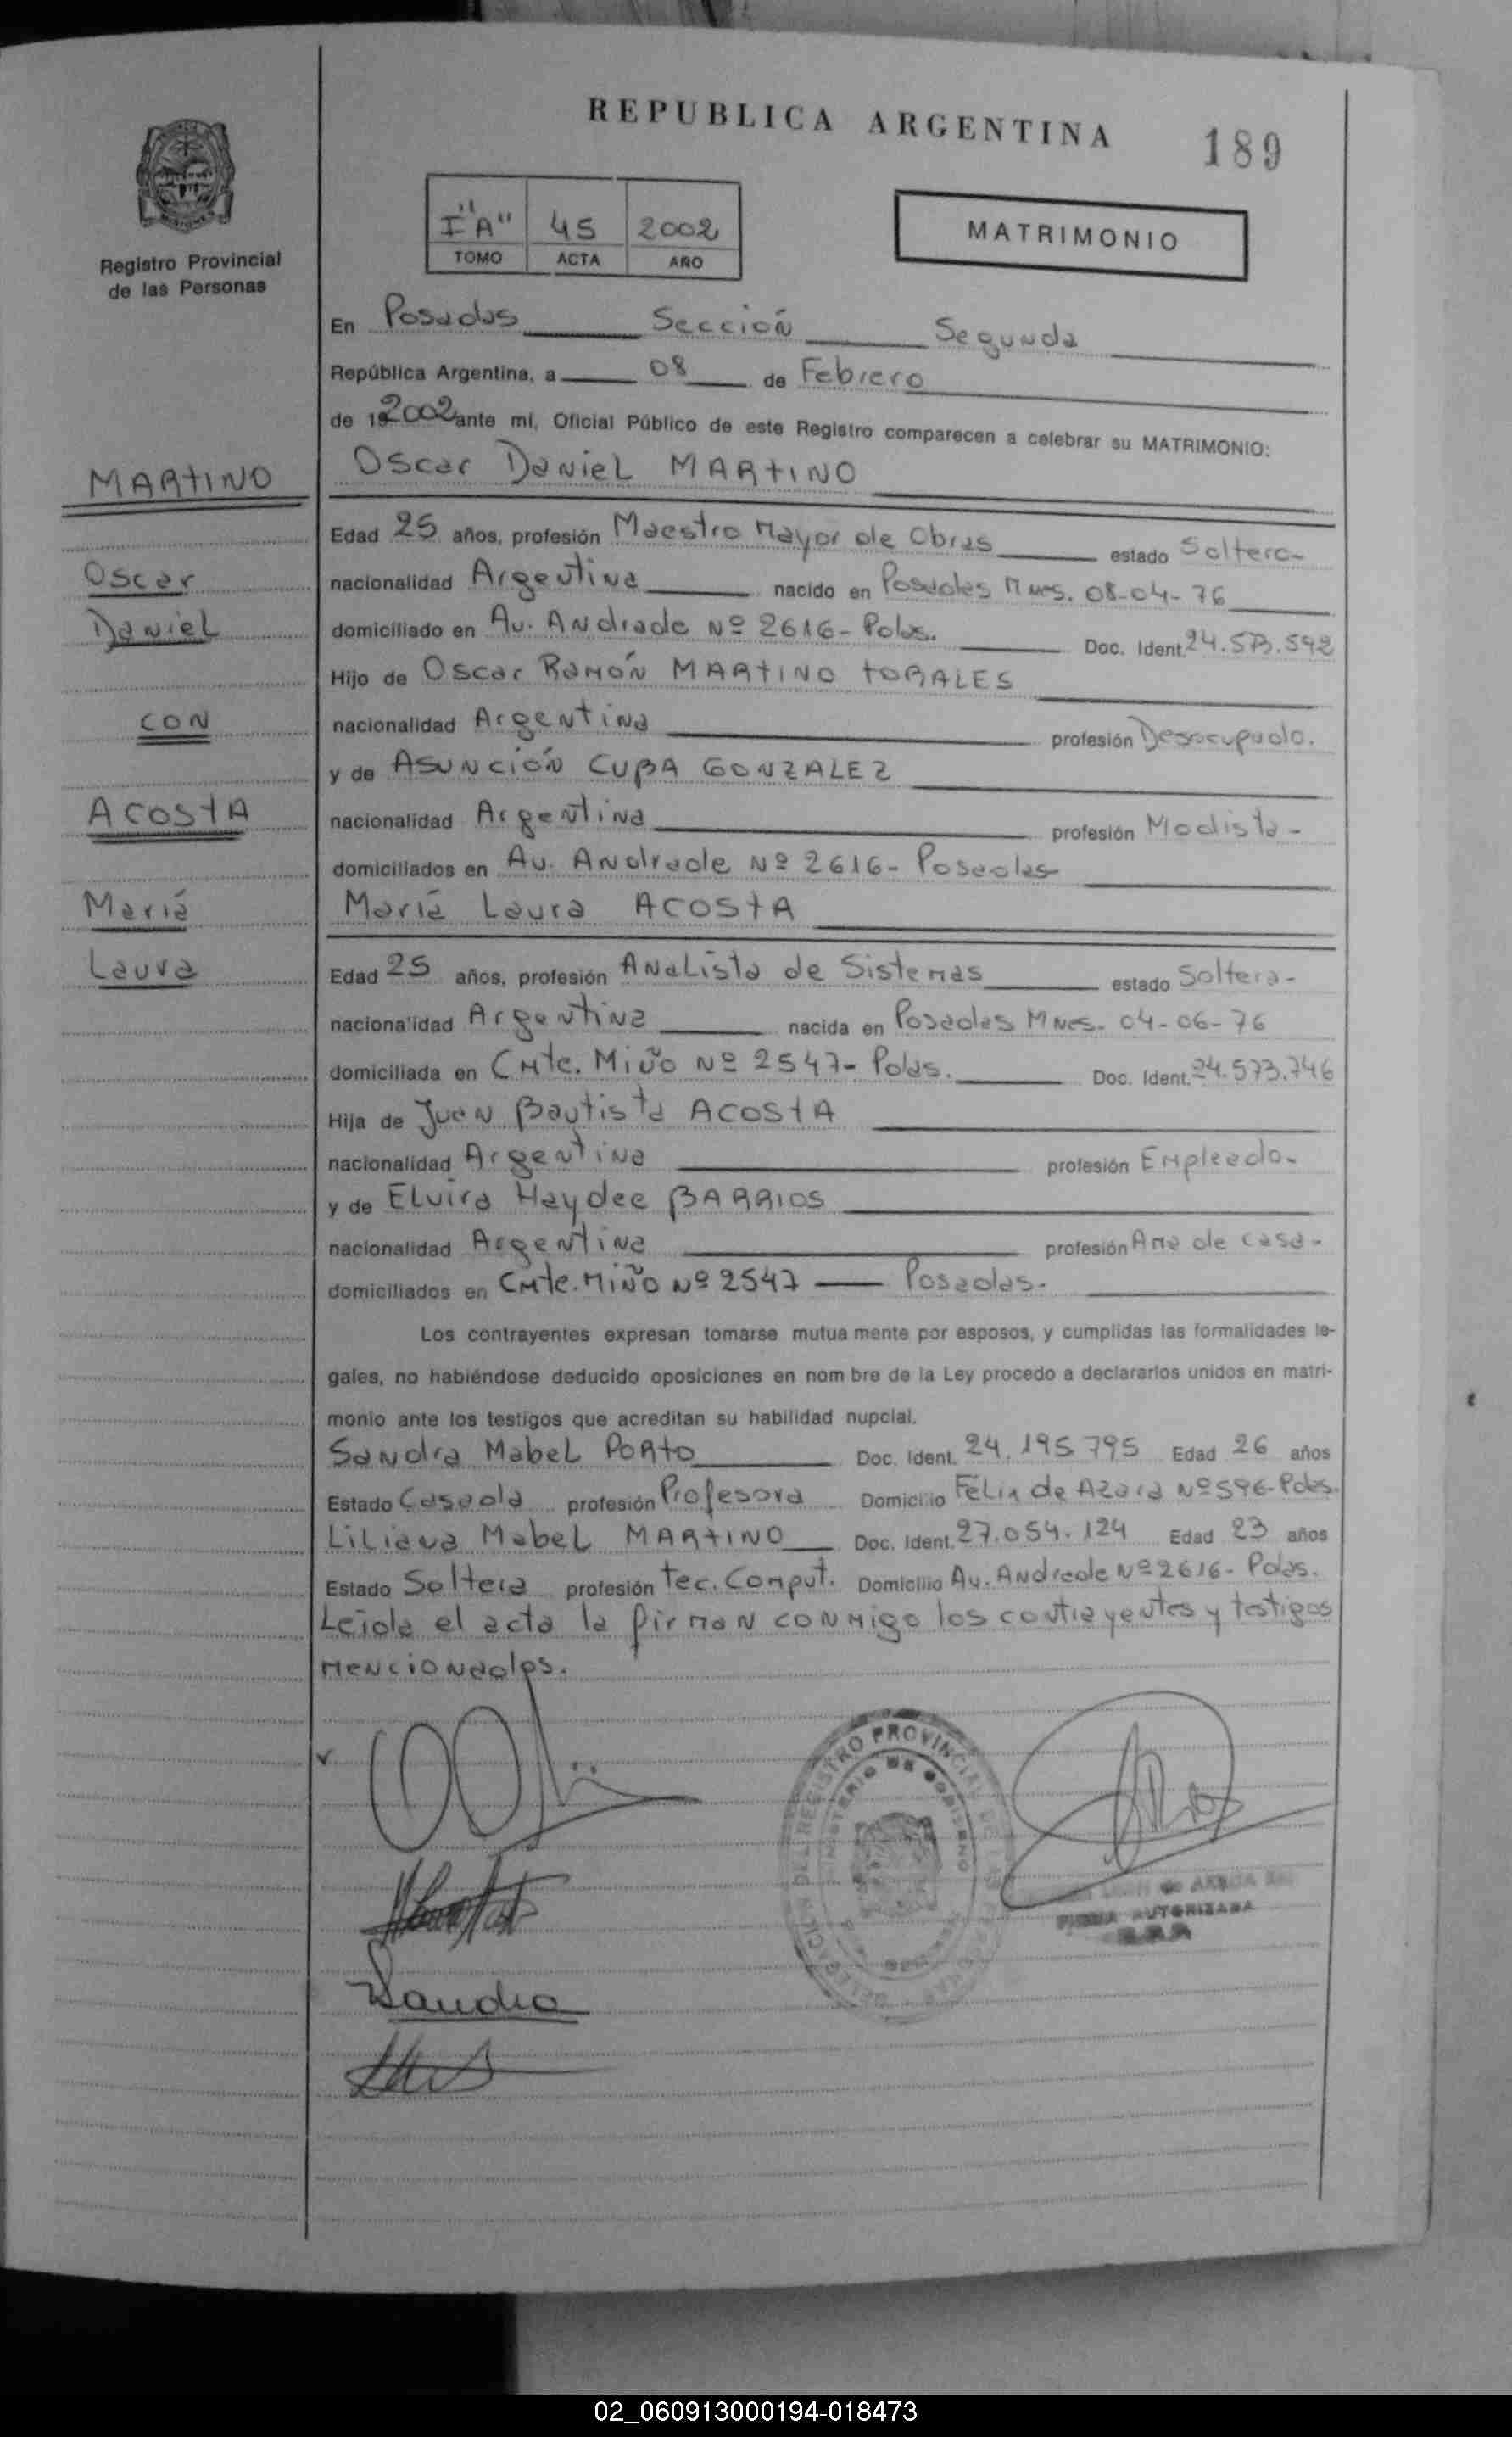 REPUBLICA ARGENTINA
189
Registro Provincial
de las Personas
I "A" 45 2002
TOMO ACTA AÑO
MATRIMONIO
En Posadas Sección Segunda
República Argentina, a 08 de Febrero
de 19 2002 ante mi, Oficial Público de este Registro comparecen a celebrar su MATRIMONIO:
MARTINO
Oscar Daniel MARTINO
Edad 25 años, profesión Maestro Mayor de Obras estado Soltero-
Oscar
nacionalidad Argentina nacido en Posadas Mnes. 08-04-76
Daniel
domiciliado en Av. Andrade Nº 2616- Pdas. Doc. Ident. 24.573.592
Hijo de Oscar Ramón MARTINO TORALES
CON
nacionalidad Argentina profesión Desocupado.
y de ASUNCIÓN CUBA GONZALEZ
ACOSTA
nacionalidad Argentina profesión Modista-
domiciliados en Av. Andrade Nº 2616- Posadas
María
María Laura ACOSTA
Laura
Edad 25 años, profesión Analista de Sistemas estado Soltera-
nacionalidad Argentina nacida en Posadas Mnes. 04-06-76
domiciliada en Cmte. Miño Nº 2547- Pdas. Doc. Ident. 24.573.746
Hija de Juan Bautista ACOSTA
nacionalidad Argentina profesión Empleado-
y de Elvira Haydee BARRIOS
nacionalidad Argentina profesión Ama de casa-
domiciliados en Cmte. Miño Nº 2547 Posadas-
Los contrayentes expresan tomarse mutua mente por esposos, y cumplidas las formalidades le-
gales, no habiéndose deducido oposiciones en nom bre de la Ley procedo a declararlos unidos en matri-
monio ante los testigos que acreditan su habilidad nupcial.
Sandra Mabel PORTO Doc. Ident. 24.195.795 Edad 26 años
Estado Casada profesión Profesora Domicilio Félix de Azara Nº 596-Pdas.
Liliana Mabel MARTINO Doc. Ident. 27.054.124 Edad 23 años
Estado Soltera profesión Tec. Comput. Domicilio Av. Andrade Nº 2616- Pdas.
Leída el acta la firman conmigo los contrayentes y testigos
mencionados.
DELEGACION DEL REGISTRO PROVINCIAL DE LAS
MINISTERIO DE GOBIERNO
FIRMA AUTORIZADA
Sandra
02_060913000194-018473